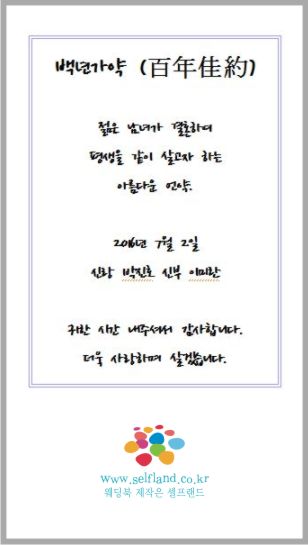 백년가약 (百年佳約)
젊은 남녀가 결혼하여
평생을 같이 살고자 하는
아름다운 언약.
2016년 7월 2일
신랑 박진호 신부 이미란
귀한 시간 내주셔서 감사합니다.
더욱 사랑하며 살겠습니다.
www.selfland.co.kr
웨딩북 제작은 셀프랜드